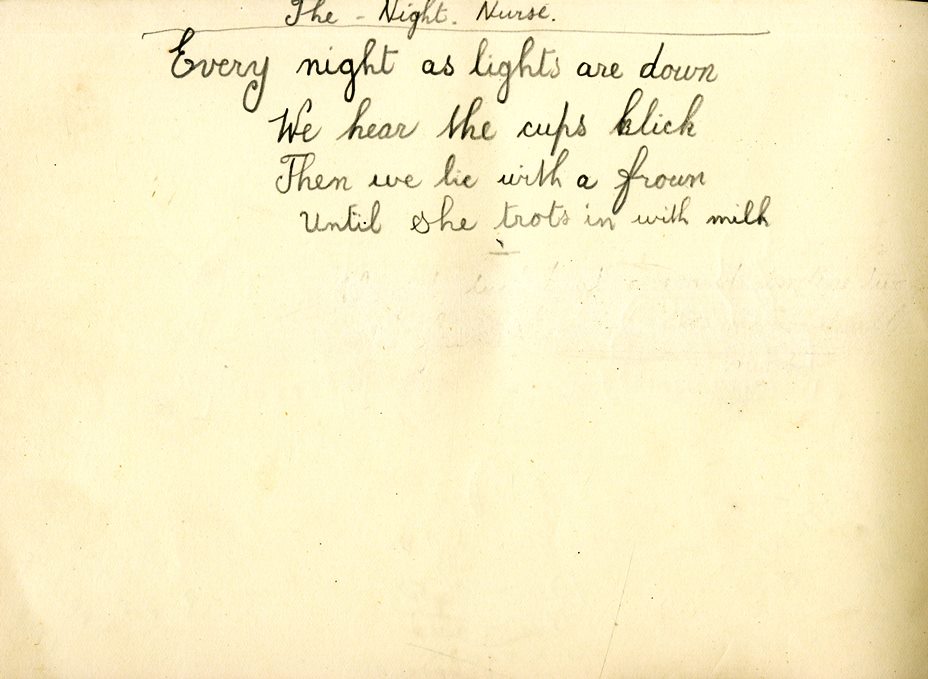 The - Night. Nurse.
Every night as lights are down
We hear the cups klick
Then we lie with a frown
Until she trots in with milk